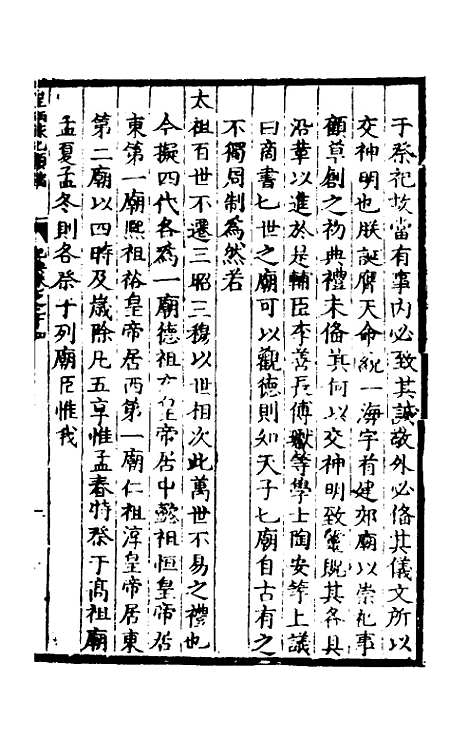 于祭祀故當有事內必致其誠敬外必備其儀文所以
交神明也朕誕膺天命統一海宇首建郊廟以崇祀事
顧草創之初典禮未備其何以交神明致靈貺其各具
沿革以進於是輔臣李善長傅瓛等學士陶安等上議
曰商書七世之廟可以觀德則知天子七廟自古有之
不獨周制爲然若
太祖百世不遷三昭三穆以世相次此萬世不易之禮也
今擬四代各爲一廟德祖玄皇帝居中懿祖恒皇帝居
東第一廟熙祖裕皇帝居西第一廟仁祖淳皇帝居東
第二廟以四時及歲除凡五享惟孟春特祭于高祖廟
孟夏孟冬則各祭于列廟臣惟我